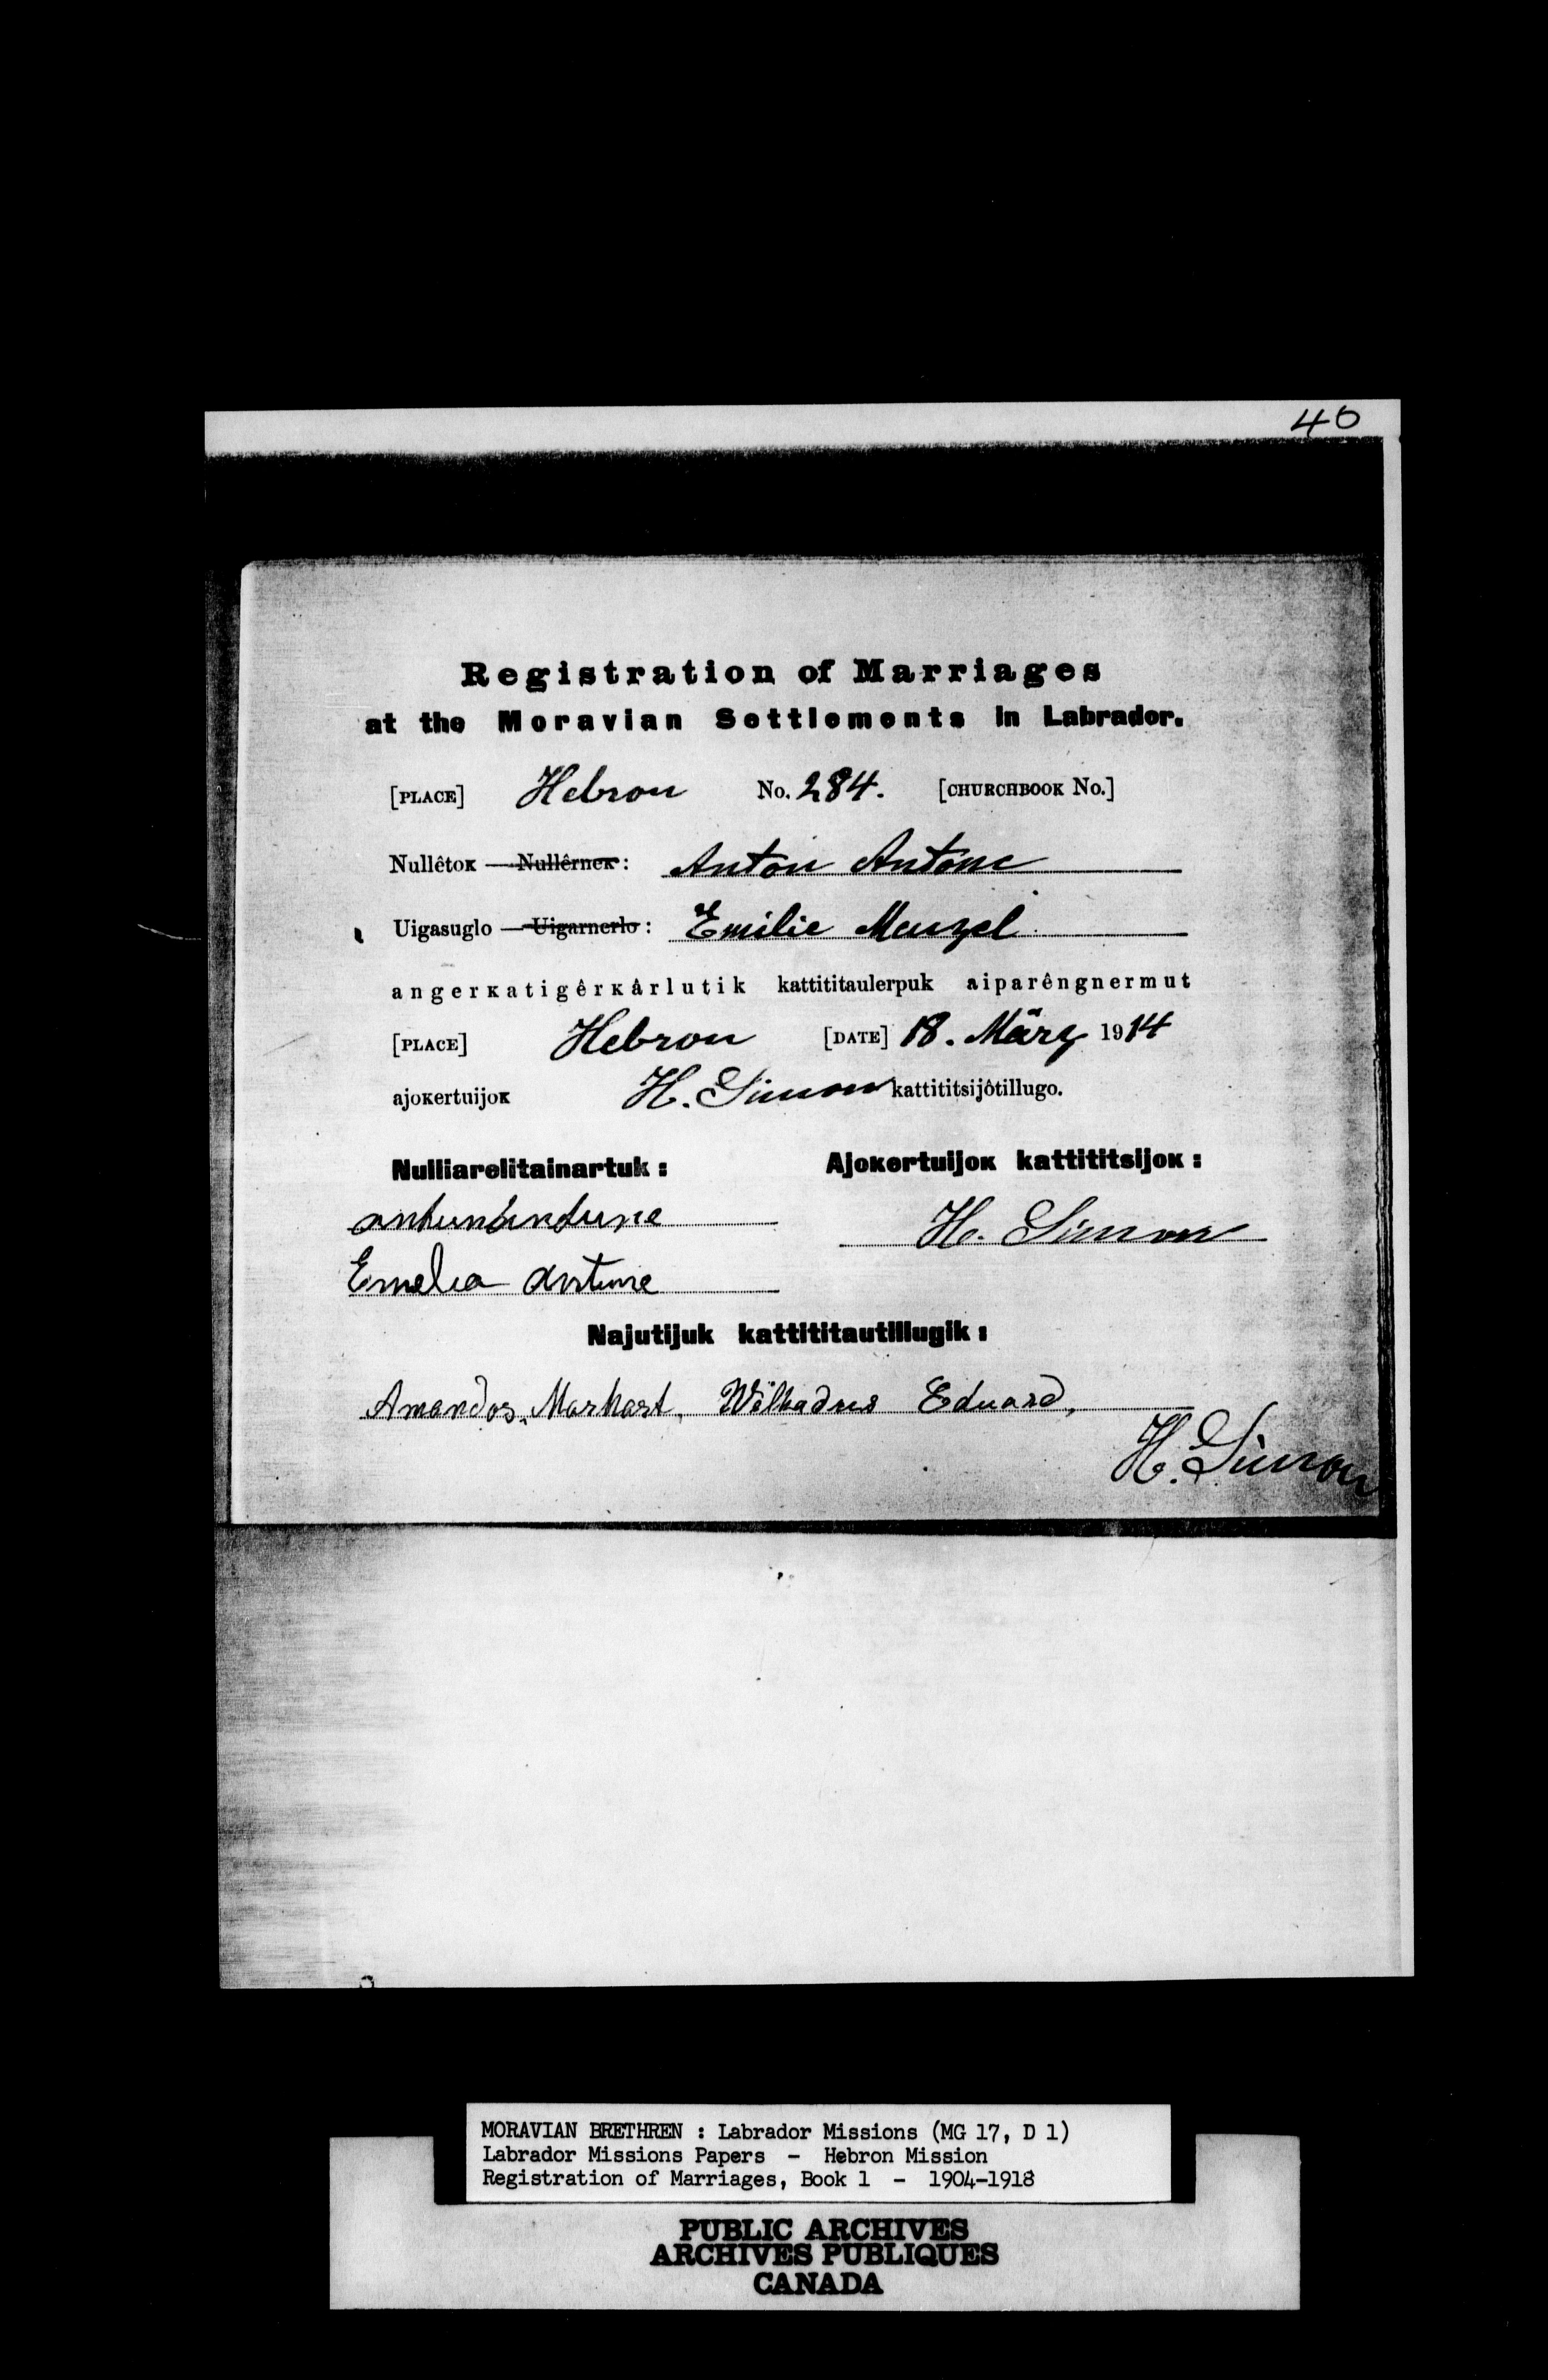 40
Registration of Marriages
at the Moravian Settlements in Labrador.
[PLACE] Hebron No. 284. [CHURCHBOOK No.]
Nullêtoĸ — Nullêrneĸ : Anton Antone
Uigasuglo — Uigarnerlo : Emilie Menzel
angerĸatigêrĸârlutik kattititaulerpuk aiparêngnermut
[PLACE] Hebron [DATE] 18. März 1914
ajoĸertuijoĸ H. Simon kattititsijôtillugo.
Nulliarelitainartuk : Ajoĸertuijoĸ kattititsijoĸ :
antunantune H. Simon
Emelia Antune
Najutijuk kattititautillugik :
Amandos, Markast, Wilhadus Eduard,
H. Simon
MORAVIAN BRETHREN : Labrador Missions (MG 17, D 1)
Labrador Missions Papers - Hebron Mission
Registration of Marriages, Book 1 - 1904-1918
PUBLIC ARCHIVES
ARCHIVES PUBLIQUES
CANADA